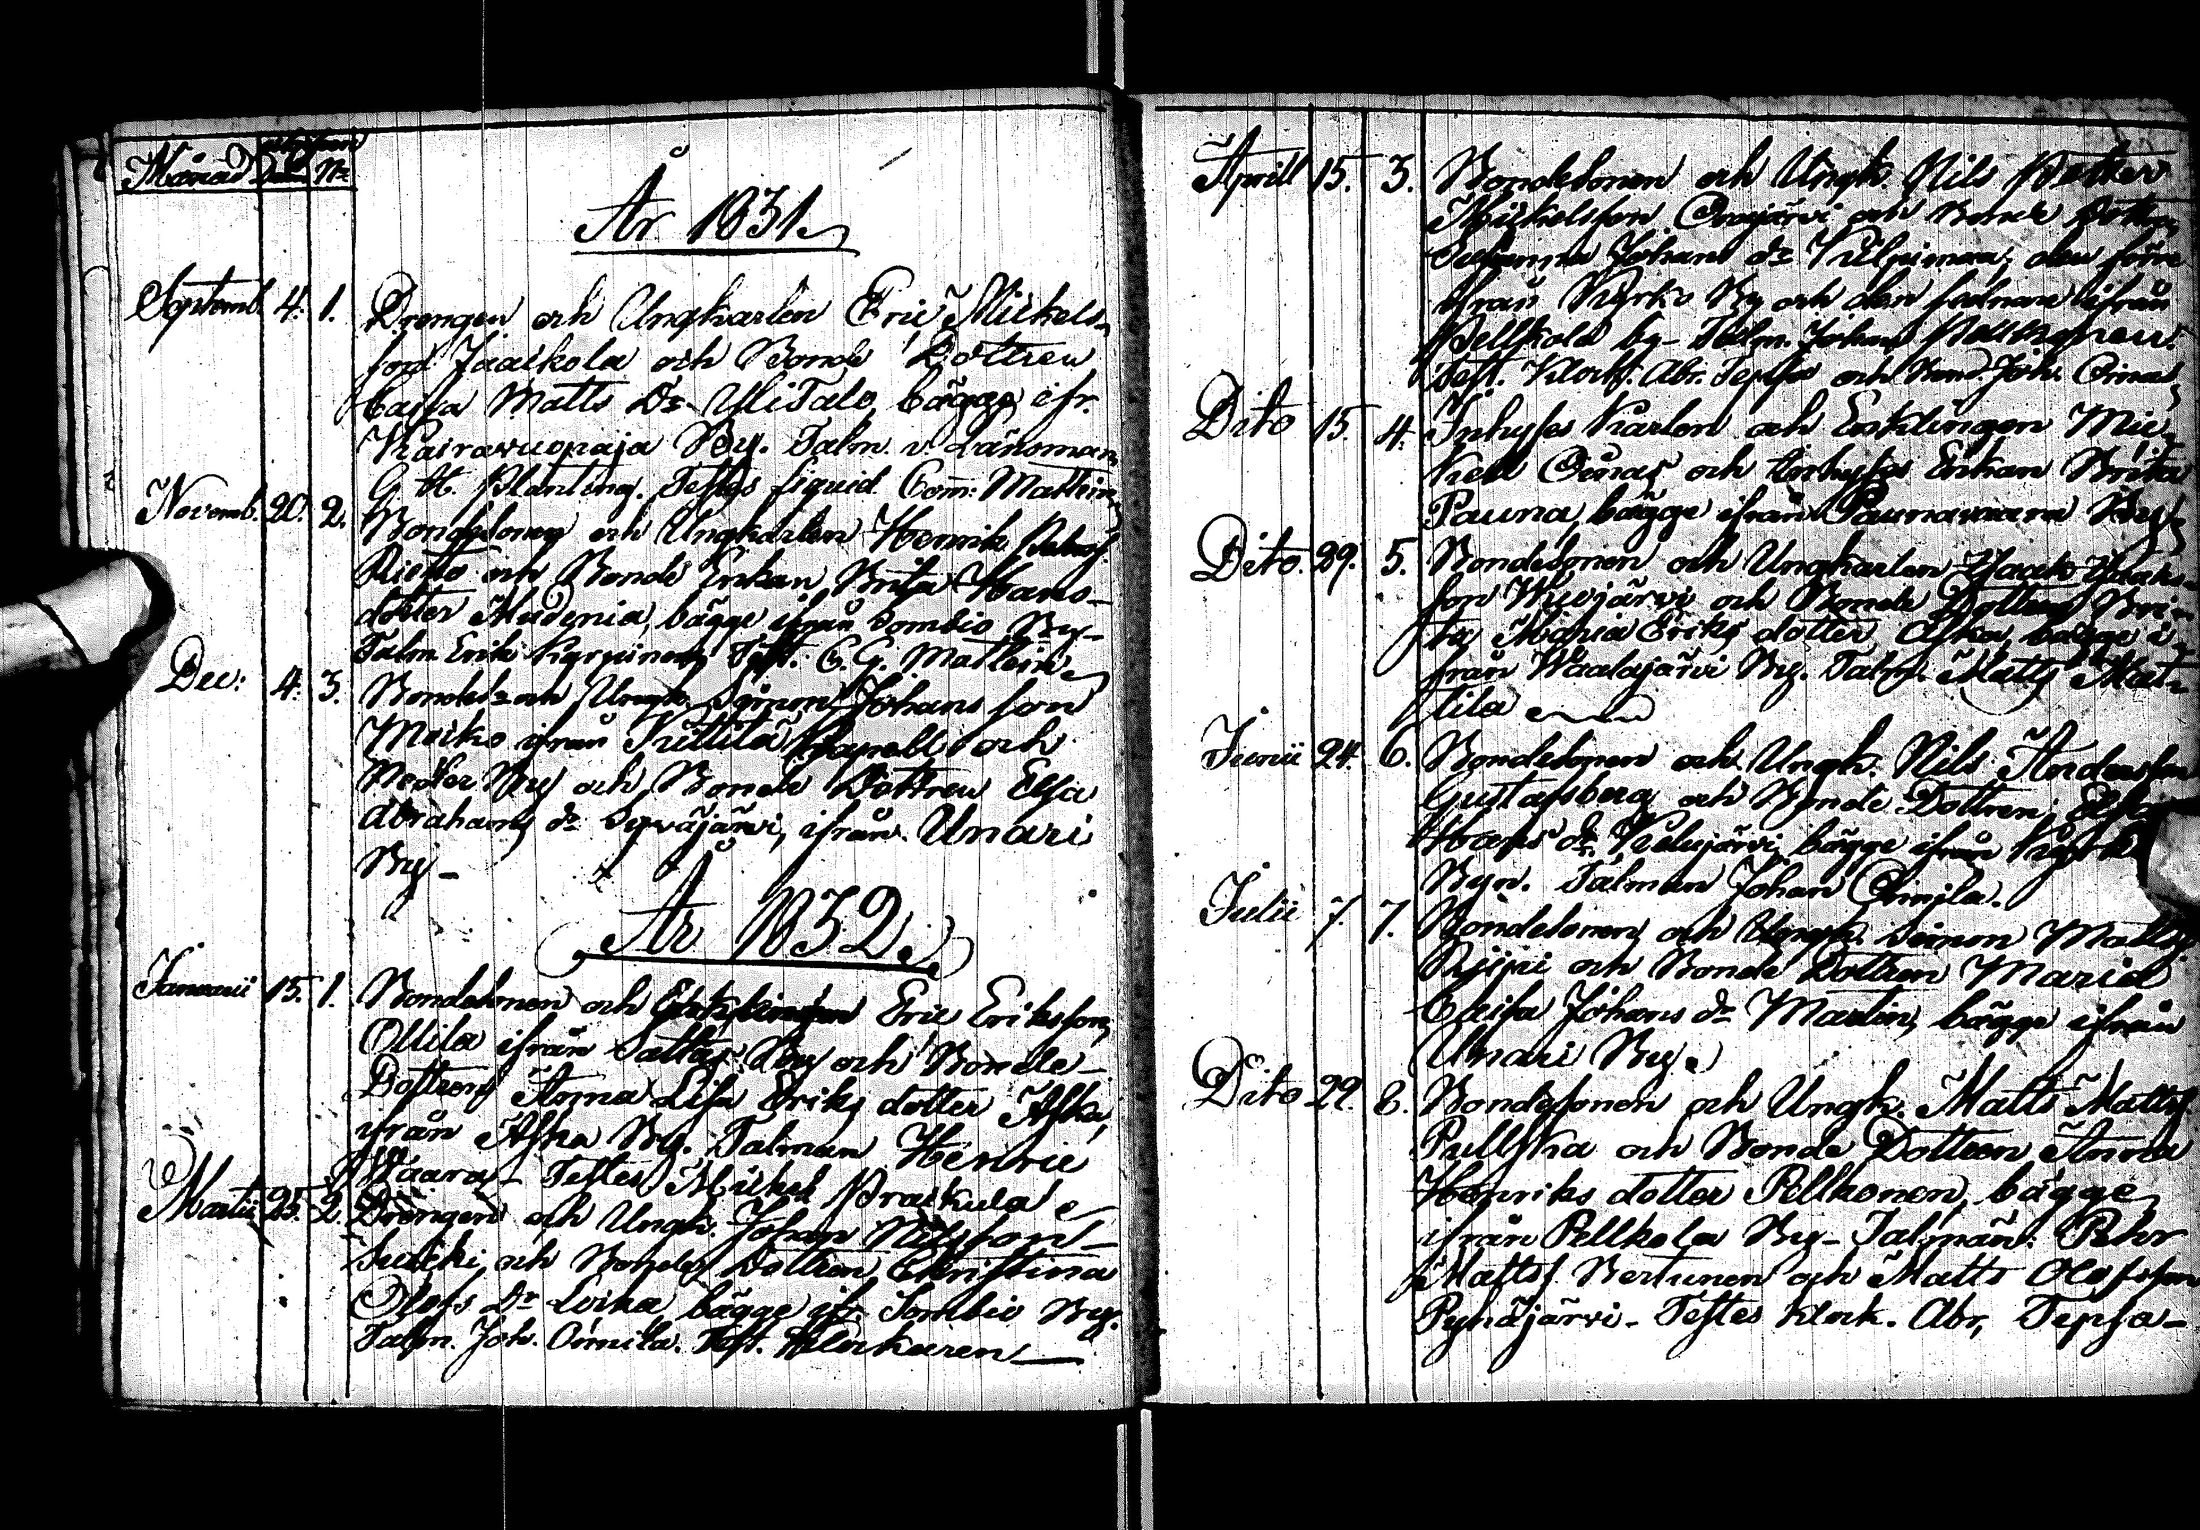 Månad Dat. No
År 1831.
Septemb. 4. 1. Drengen och Ungkarlen Eric Mickels-
son Jaakola och Bonde Dottren
Caisa Matts Dr YliTalo, bägge ifr.
Kairavuopaja By. Talm. v. Länsman
G. H. Planting. Testes siquid. Com: Mathein
Novemb. 20. 2. Bondesonen och Ungkarlen Henrik Peterss.
Riesto och Bonde Enkan Brita Hans-
dotter Madenia, bägge ifrån Sombio By-
Talm. Erik Karpinen, Test. C. G. Mathein
Dec: 4. 3. Bondes. och Ungk. Simon Johans son
Moiko ifrån Kittilä Capell och
Neder By och Bonde Dottren Elsa
Abrahams dr Syväjärvi, ifrån Unari
By-
År 1832.
Januarii 15. 1. Bondesonen och Enklingen Eric Eriksson
Ollila ifrån Sattas By och Bonde-
Dottren Anna Lisa Eriks dotter Aska,
ifrån Aska By. Talman Henric
Waara- Testes Mickel Praikula
Martii 25. 2. Drängen och Ungk. Johan Nilsson-
Suikki, och Bonde Dottren Christina
Olofs Dr Loika, bägge ifr. Sombio By.
Talm. Joh. Arnila. Test. Klockaren-
Aprill 15. 3. Bondesonen och Ungk. Nils Petter
Mickelsson Orajärvi och Bonde Dottren
Susanna Johans dr Kulpimaa, den förre
ifrån Kyrko By och den sednare ifrån
Pellkola by- Talm. Johan Pellkonen.
Test. Klock. Abr. Tepsa och Bond. Joh. Oinas
Dito 15. 4. Inhyses Karlen och Enklingen Mic-
kell Oinas och Inhyses Enkan Brita
Pauna, bägge ifrån Paunavaara By
Dito. 29. 5. Bondesonen och Ungkarlen Isaak Isaks-
son Wuojärvi och Bonde Dottren Bri-
ta Maria Eriks dotter Aska, bägge i-
från Waalajärvi By. Talm. Matts Mat-
tila
Junii 24. 6. Bondesonen och Ungk. Nils Andersson
Gustafsberg och Bonde Dottren Elsa
Hans dr Kelujärvi, bägge ifrån Kyrko
Byn. Talman Johan Armila.
Julii 7. 7. Bondesonen och Ungk. Simon Matts.
Riipi och Bonde Dottren Maria
Caisa Johans dr Martin, bägge ifrån
Unari By.
Dito 29. 8. Bondesonen och Ungk. Matts Matts.
Pullska och Bonde Dottren Anna
Henriks dotter Pellkonen, bägge
ifrån Pellkola By- Talmän: Pehr
Mattss. Bertunen och Matts Olofsson
Pyhäjärvi- Testes Klock. Abr. Tepsa-